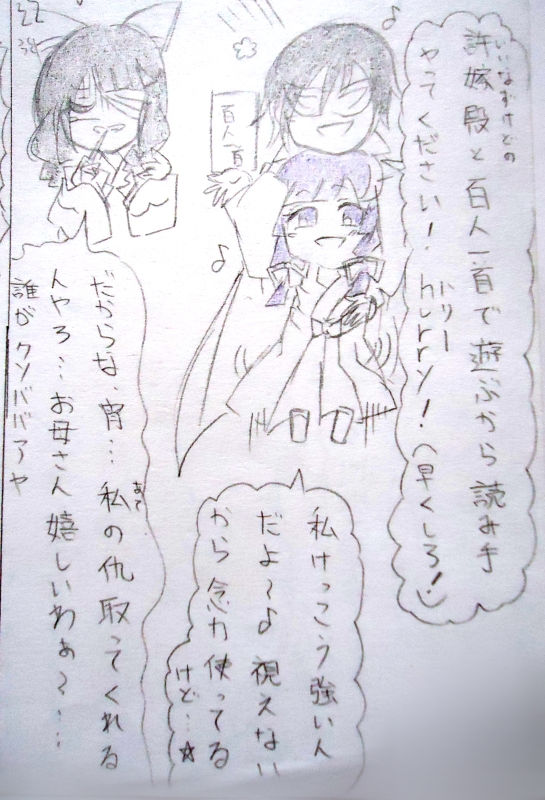 許嫁殿と百人一首で遊ぶから読み手
いいなずけどの
やってください！hurry！（早くしろ！）
ハリー
百人一首
私けっこう強い人
だよ～♪視えない
から念力使ってる
けど…☆
だからな、宵…私の仇取ってくれる
あて
人やろ…お母さん嬉しいわぁ～…
誰がクソババアヤ